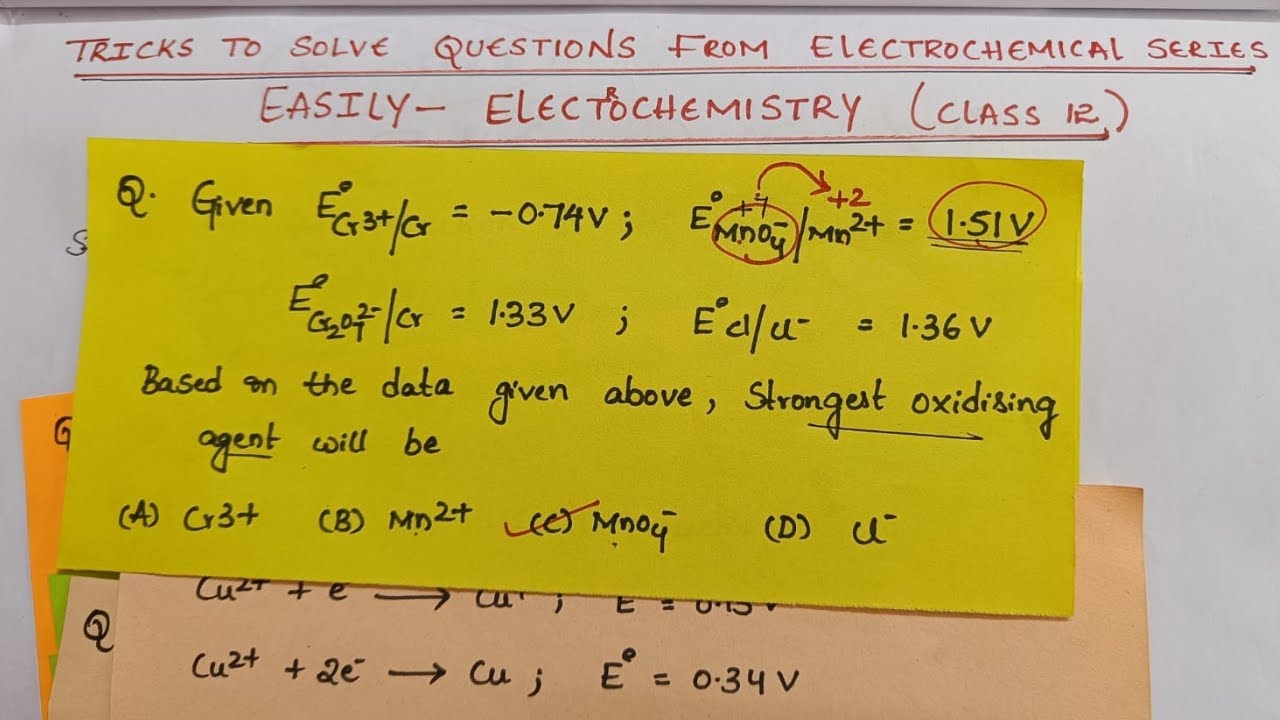 TRICKS TO SOLVE QUESTIONS FROM ELECTROCHEMICAL SERIES
EASILY- ELECTROCHEMISTRY (CLASS 12)
Q. Given E° Cr3+/Cr = -0.74V ; E° MnO4⁻/Mn2+ = 1.51V
+7 +2
E° Cr2O7²⁻/Cr = 1.33V ; E° Cl/Cl⁻ = 1.36V
Based on the data given above, Strongest oxidising
agent will be
(A) Cr3+ (B) Mn2+ (C) MnO4⁻ (D) Cl⁻
Cu2+ + e⁻ → ; E° =
Q
Cu2+ + 2e⁻ → Cu ; E° = 0.34V